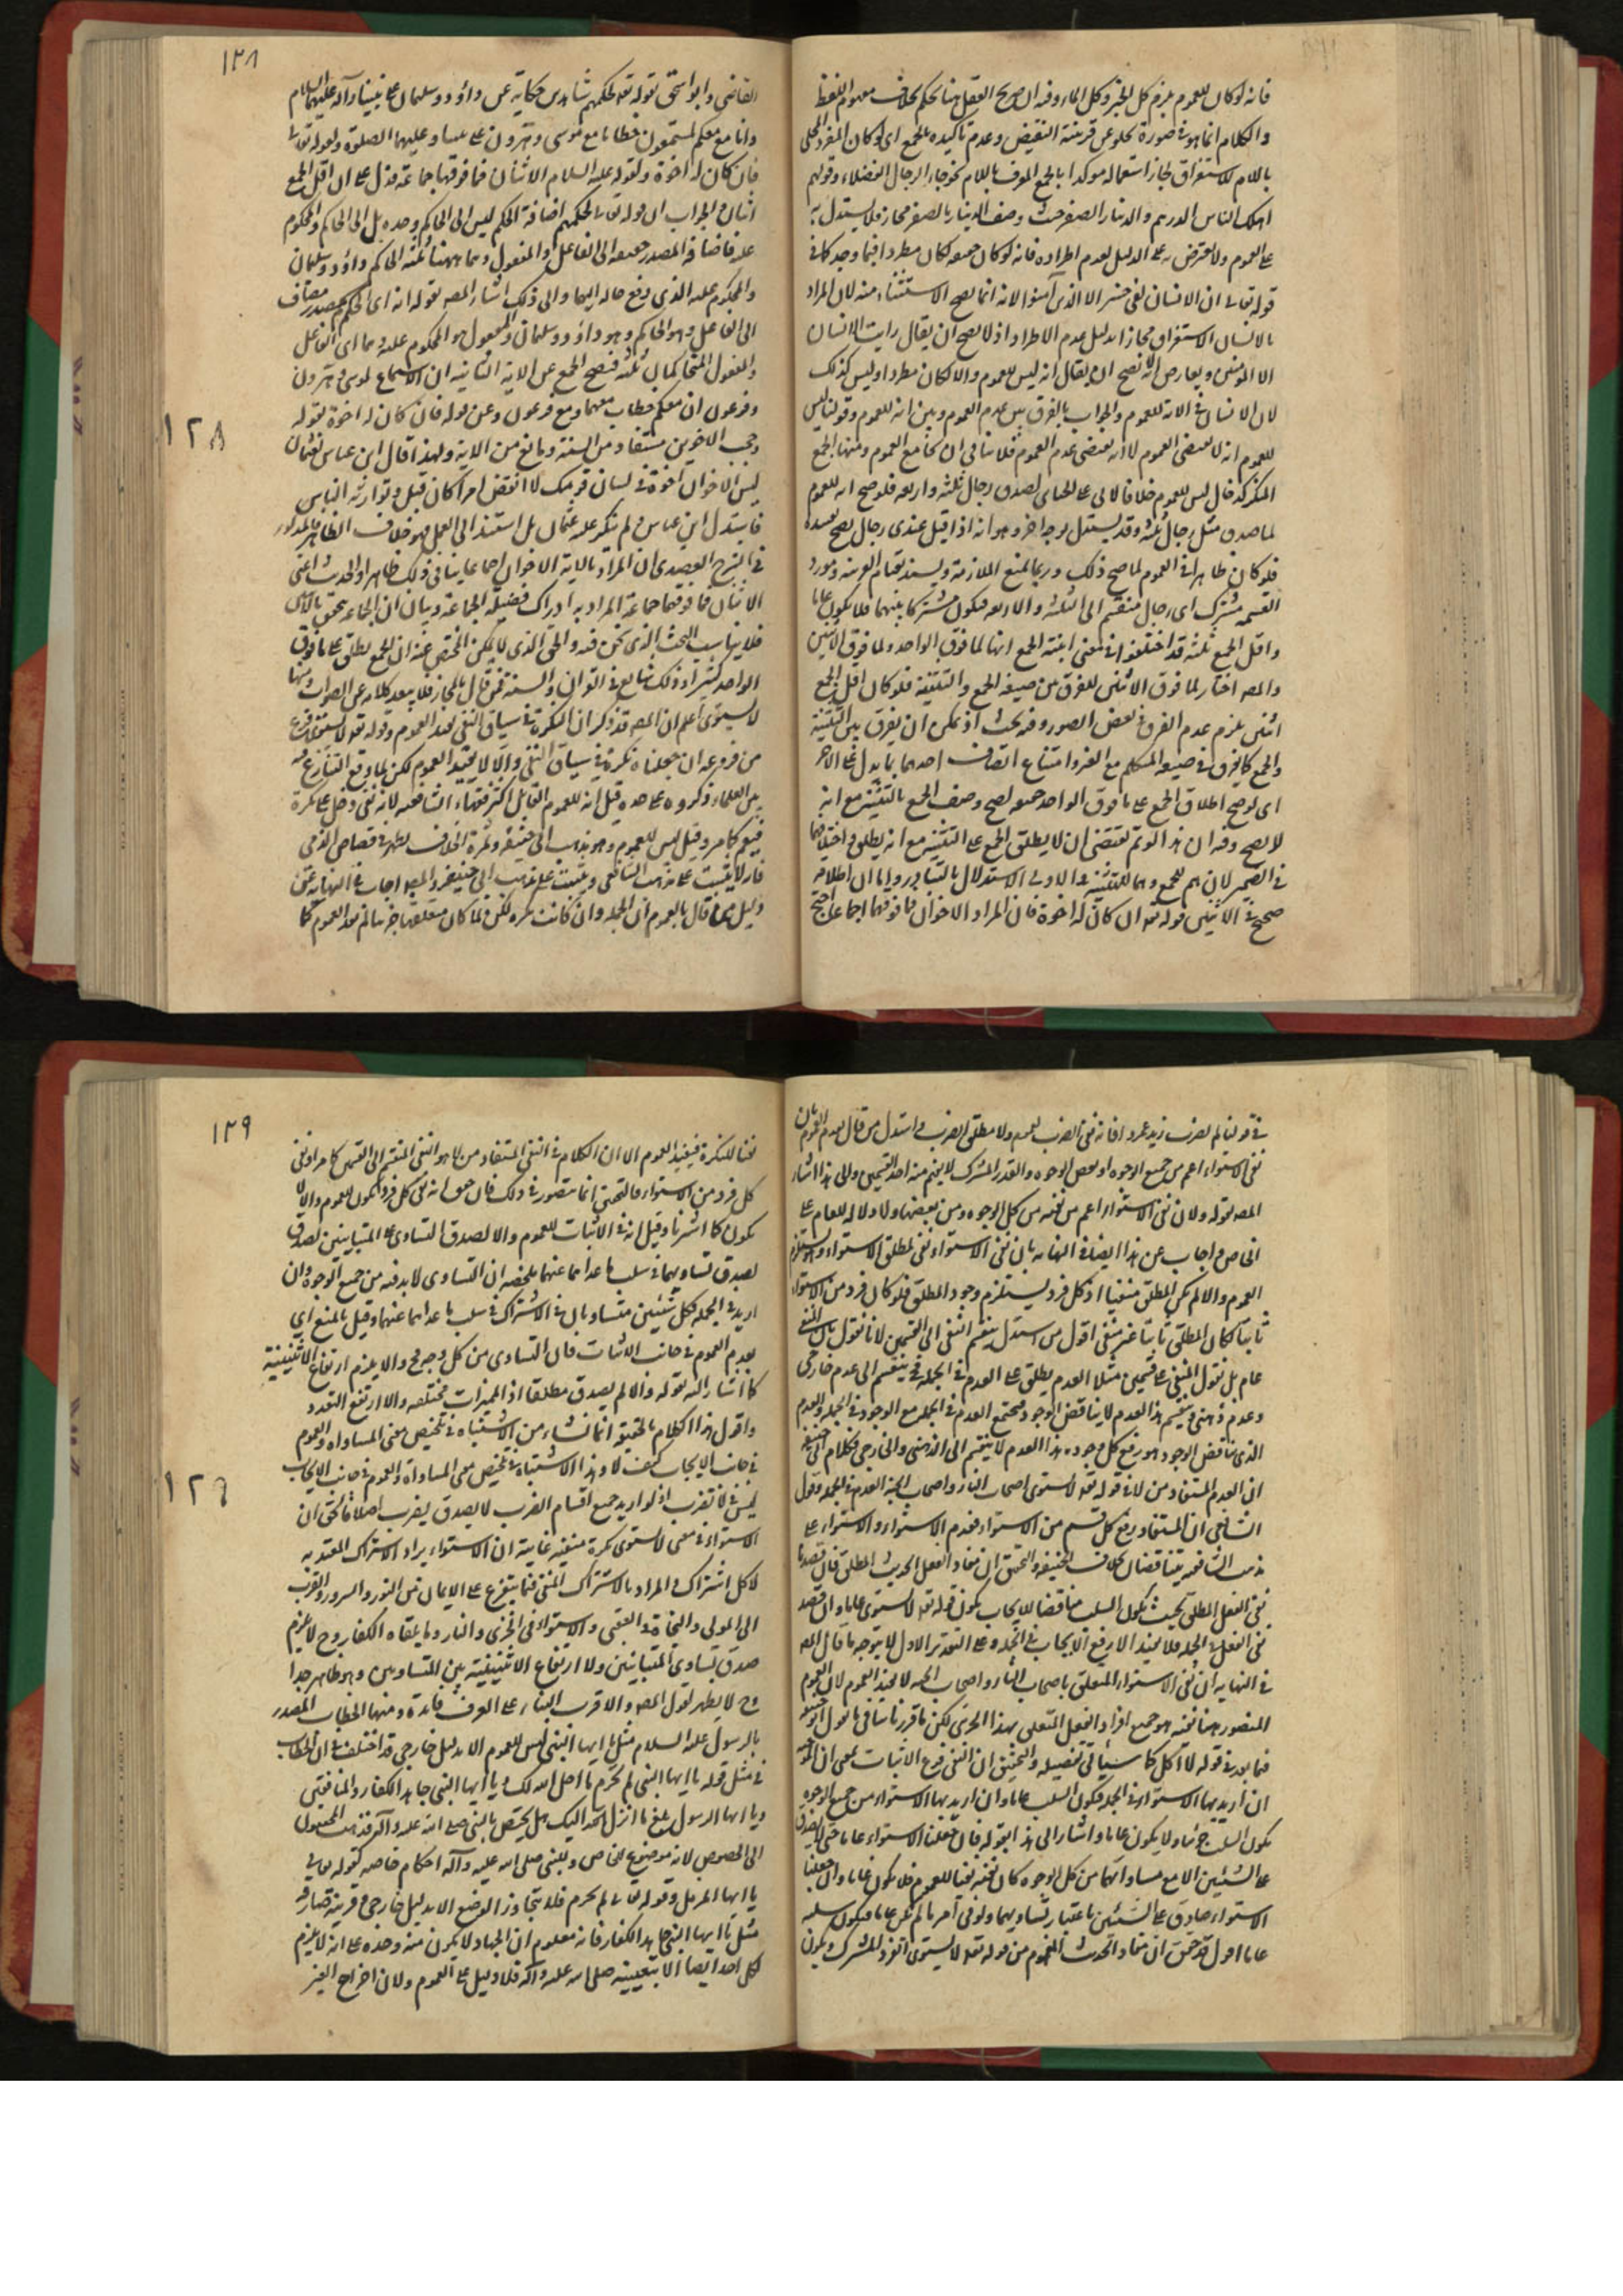 فانه لو كان للعموم يلزم كل الخبز وكل الماء وفيه ان صريح العقل هنا يحكم بخلاف مفهوم اللفظ
والكلام انما هو فى صورة تخلو عن قرينة النقيض وعدم تأكيده بالجمع اى لو كان المفرد المحلى
باللام للاستغراق لجاز استعماله موكدا بالجمع المعرف باللام نحو جاء الرجال الفضلاء وقولهم
اهلك الناس الدرهم والدينار الصفر حيث وصف الدينار بالصفر مجاز فلا يستدل به
على العموم ولا يعترض به على الدليل لعدم اطراده فانه لو كان جمعه لكان مطردا فيما وجد كما فى
قوله تعالى ان الانسان لفى خسر الا الذين آمنوا لانه انما يصح الاستثناء منه لان المراد
بالانسان الاستغراق مجازا بدليل عدم الاطراد اذ لا يصح ان يقال رايت الانسان
الا المؤمنين ويعارض انه يصح ان يقال انه ليس للعموم والا لكان مطردا وليس كذلك
لان الانسان فى الاية للعموم والجواب بالفرق بين عدم العموم وبين انه للعموم وقولنا ليس
للعموم انه لا يقتضى العموم لا انه يقتضى عدم العموم فلا ينافى ان يجامع العموم ومنها الجمع
المنكر كرجال ليس للعموم خلافا لابى على الجبائى لصدق رجال ثلثة واربعة فلو صح انه للعموم
لما صدق مثل رجال ثلثة وقد يستدل بوجه اخر وهو انه اذا قيل عندى رجال يصح تفسيره
فلو كان ظاهرا فى العموم لما صح ذلك وربما يمنع الملازمة ويسند بقيام القرينة ومورد
القسمة مشترك اى رجال منقسم الى الثلثة والاربعة فيكون مشتركا بينهما فلا يكون عاما
واقل الجمع ثلثة قد اختلفوا فى معنى ابنية الجمع انها لما فوق الواحد ولما فوق الاثنين
والمصه اختار لما فوق الاثنين للفرق بين صيغة الجمع والتثنية فلو كان اقل الجمع
اثنين يلزم عدم الفرق فى بعض الصور وفيه بحث اذ يمكن ان يفرق بين التثنية
والجمع كالفرق فى صيغة المتكلم مع الغير وامتناع اتصاف احدهما بما يدل على الاخر
اى لو صح اطلاق الجمع على ما فوق الواحد جميعه لصح وصف الجمع بالتثنية مع انه
لا يصح وفيه ان هذا لو تم يقتضى ان لا يطلق الجمع على التثنية مع انه يطلق واختلافهما
فى الضمير لان هم للجمع وهما للتثنية والاولى الاستدلال بالتبادر واما ان اطلاقه
صحيح فى الاثنين قوله تع ان كان له اخوة فان المراد الاخوان فما فوقهما اجماعا احتج
١٢٨
القاضى وابو اسحق بقوله تع لحكمهم شاهدين حكاية عن داؤد وسليمان على نبينا وآله وعليهما السلام
وانا معكم مستمعون خطابا مع موسى وهرون على نبينا وعليهما الصلوة ولقوله تعالى
فان كان له اخوة ولقوله عليه السلام الاثنان فما فوقها جماعة فدل على ان اقل الجمع
اثنان والجواب ان قوله تعالى لحكمهم اضافة الحكم ليس الى الحاكم وحده بل الى الحاكم والمحكوم
عليه فاضافة المصدر جميعه الى الفاعل والمفعول وهما ههنا ثلثة الحاكم داؤد وسليمان
والمحكوم عليه الذى وقع حاله اليهما والى ذلك اشار المصه بقوله انه اى الحكم مصدر مضاف
الى الفاعل وهو الحاكم وهو داؤد وسليمان والمفعول هو المحكوم عليه وهما اى الفاعل
والمفعول المتحاكمان ثلثة فيصح الجمع عن الاية الثانية ان الاستماع لموسى وهرون
وفرعون ان معكم خطاب معهما ومع فرعون وعن قوله فان كان له اخوة بقوله
وحجب الاخوين مستفاد من السنة ومانع من الاية ولهذا قال ابن عباس لعثمان
ليس الاخوان اخوة فى لسان قومك لا انقض امرا كان قبلى وتوارثه الناس
فاستدل ابن عباس ولم ينكر عليه عثمان بل استند الى العمل فهو خلاف الظاهر والمذكور
فى الشرح العضدى ان المراد بالاية الاخوان اجماعا ينافى ذلك ظاهرا والحديث اعنى
الاثنان فما فوقهما جماعة المراد به ادراك فضيلة الجماعة وبيان ان الجماعة تتحقق بالاثنين
فلا يناسب البحث الذى نحن فيه والحق الذى لا يمكن التخصى عنه ان الجمع يطلق على ما فوق
الواحد كثيرا وذلك شايع فى القرآن والسنة فمن قال بالمجاز فلا يبعد كلامه عن الصواب ومنها
لا يستوى اعلم ان المصه قد ذكر ان النكرة فى سياق النفى يفيد العموم وقوله تع لا يستوى فرع
من فروعه ان جعلناه نكرة فى سياق النفى والا لا يفيد العموم لكن لما وقع التنازع فيه
بين العلماء ذكروه على حده قيل انه للعموم القايل اكثر فقهاء الشافعية لانه نفى دخل على نكرة
فيعم كما مر وقيل ليس للعموم وهو مذهب ابى حنيفة وثمرة الخلاف يظهر فى قصاص الذمى
فانه لا يثبت على مذهب الشافعى ويثبت على مذهب ابى حنيفة والمصه اجاب فى النهاية عن
دليل من قال بالعموم ان الجملة وان كانت نكره لكن لما كان متعلقها جزئيا لم يفد العموم كما
١٢٨
فى قولنا لم يضرب زيد عمروا فانه نفى لضرب لعمرو لا مطلق الضرب واستدل من قال بعدم العموم بان
نفى الاستواء اعم من جميع الوجوه او بعض الوجوه والقدر المشترك لا يفهم منه احد القسمين والى هذا اشار
المصه بقوله ولان نفى الاستواء اعم من نفيه من كل الوجوه ومن بعضها ولا دلالة للعام على
الخاص واجاب عن هذا ايضا فى النهاية بان نفى الاستواء نفى لمطلق الاستواء وهو يستلزم
العموم والا لم يكن المطلق منفيا اذ كل فرد يستلزم وجود المطلق فلو كان فرد من الاستواء
ثابتا لكان المطلق ثابتا غير منفى اقول من استدل بتقسيم النفى الى القسمين لانا نقول بان المنفى
عام بل نقول النفى على قسمين مثلا العدم يطلق على العدم فى الجملة فح ينقسم الى عدم خارجى
وعدم ذهنى وبتقسيم هذا العدم لا يناقض الوجود ويجتمع العدم فى الجملة مع الوجود فى الجملة والعدم
الذى يناقض الوجود هو رفع كل وجود هذا العدم لا ينقسم الى الذهنى والخارجى فكلام ابى حنيفة
ان العدم المستفاد من لا فى قوله تع لا يستوى اصحاب النار واصحاب الجنة العدم فى الجملة وقول
الشافعى ان المستفاد رفع كل قسم من الاستواء فعدم الاستواء والاستواء على
مذهب الشافعى يتناقضان بخلاف الحنيفة والتحقيق ان مفاد الفعل الحدث المطلق فان قصد
نفى الفعل المطلق بحيث يكون السلب مناقضا للايجاب يكون قوله تع لا يستوى عاما وان قصد
نفى الفعل فى الجملة فلا يفيد الا رفع الايجاب فى الجملة وعلى التقدير الاول لا يتوجه ما قال المصه
فى النهاية ان نفى الاستواء المتعلق باصحاب النار واصحاب الجنة لا يفيد العموم لان العموم
المتصور هنا نفيه هو جميع افراد الفعل المتعلق بهذا الجزئى لكن ما قررنا ينافى ما يقول ابو حنيفة
فيما بعد فى قوله لا آكل كما سيأتى تفصيله والتحقيق ان النفى فرع الاثبات بمعنى ان
ان اريد بها الاستواء فى الجملة فيكون السلب عاما وان اريد بها الاستواء من جميع الوجوه
يكون السلب جزئيا ولا يكون عاما واشار الى هذا بقوله فان جعلنا الاستواء عاما حتى لا يصدق
على الشيئين الا مع مساواتهما من كل الوجوه كان نفيه نفيا للعموم فلا يكون عاما وان جعلنا
الاستواء صادق على الشيئين باعتبار تساويهما ولو فى امر ما لم يكن عاما فيكون سلبه
عاما اقول قد حقق ان مفاد الحدث المفهوم من قوله تع لا يستوى القدر المشترك ويكون
١٢٩
نفيا للنكرة فيفيد العموم الا ان الكلام فى النفى المستفاد من لا هو النفى المنقسم الى القسمين كما مر او نفى
كل فرد من الاستواء فالتحقيق انما يتصور فى ذلك فان حق انه نفى كل فرد فيكون للعموم والا لا
يكون كما اشرنا وقيل انه فى الاثبات للعموم والا لصدق التساوى على المتباينين لصدق
لصدق تساويهما فى سلب ما عداهما عنهما ملخصه ان التساوى لا بد فيه من جميع الوجوه وان
اريد فى الجملة فكل شيئين متساويان فى الاشتراك فى سلب ما عداهما عنهما وقيل بالمنع اى
بعدم العموم فى جانب الاثبات فان التساوى من كل وجه والا يلزم ارتفاع الاثنينية
كما اشار اليه بقوله والا لم يصدق مطلقا اذ المميزات مختلفة والا ارتفع التعدد
واقول هذا الكلام بالحقيقة انما نشاء من الاشتباه فى تلخيص معنى المساواة والعموم
فى جانب الايجاب كيف لا وهذا الاشتباه فى تلخيص معنى المساواة والعموم فى جانب الايجاب
ليس فى لا تضرب اذ لو اريد جميع اقسام الضرب لا يصدق يضرب اصلا فالحق ان
الاستواء فى معنى لا يستوى نكرة منفية غايته ان الاستواء يراد الاشتراك المعتد به
لا كل اشتراك والمراد بالاشتراك المنفى فيما يتفرع على الايمان من النور والسرور والقرب
الى المولى والنجاة فى العقبى والاستواء فى الخزى والنار وما يلقاه الكفار وح لا يلزم
صدق تساوى المتباينين ولا ارتفاع الاثنينية بين المتساويين وهو ظاهر جدا
وح لا يظهر لقول المصه والاقرب البناء على العرف فائدة ومنها الخطاب المصدر
بالرسول عليه السلام مثل يا ايها النبى ليس للعموم الا بدليل خارجى قد اختلف فى ان الخطاب
فى مثل قوله يا ايها النبى لم تحرم ما احل الله لك ويا ايها النبى جاهد الكفار والمنافقين
ويا ايها الرسول بلغ ما انزل اليك هل يختص بالنبى صلى الله عليه وآله فذهب المحققون
الى الخصوص لانه موضوع لخاص وللنبى صلى الله عليه وآله احكام خاصة كقوله تعالى
يا ايها المزمل وقوله تعالى لم تحرم فلا يتجاوز الوضع الا بدليل خارجى وقرينة صارفة
مثل يا ايها النبى جاهد الكفار فانه معلوم ان الجهاد لا يكون منه وحده على انه لا يلزم
لكل احد ايضا الا بتعيينه صلى الله عليه وآله فلا دليل على العموم ولان اخراج الغير
١٢٩